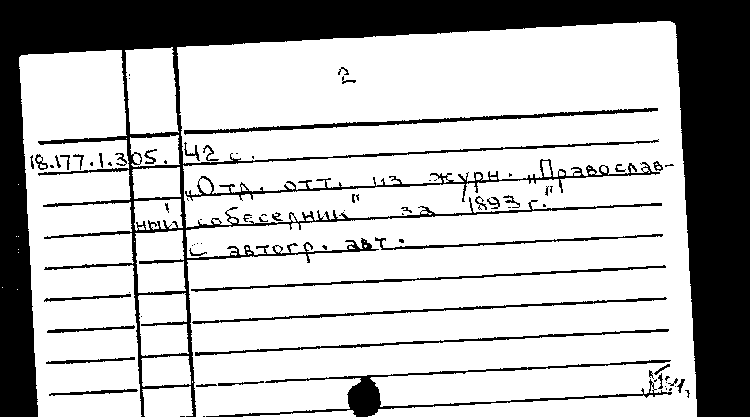 2
18.177.1.305. 42 с.
„Отд. отт. из журн. „Православ-
ный собеседник" за 1893 г."
С автогр. авт.